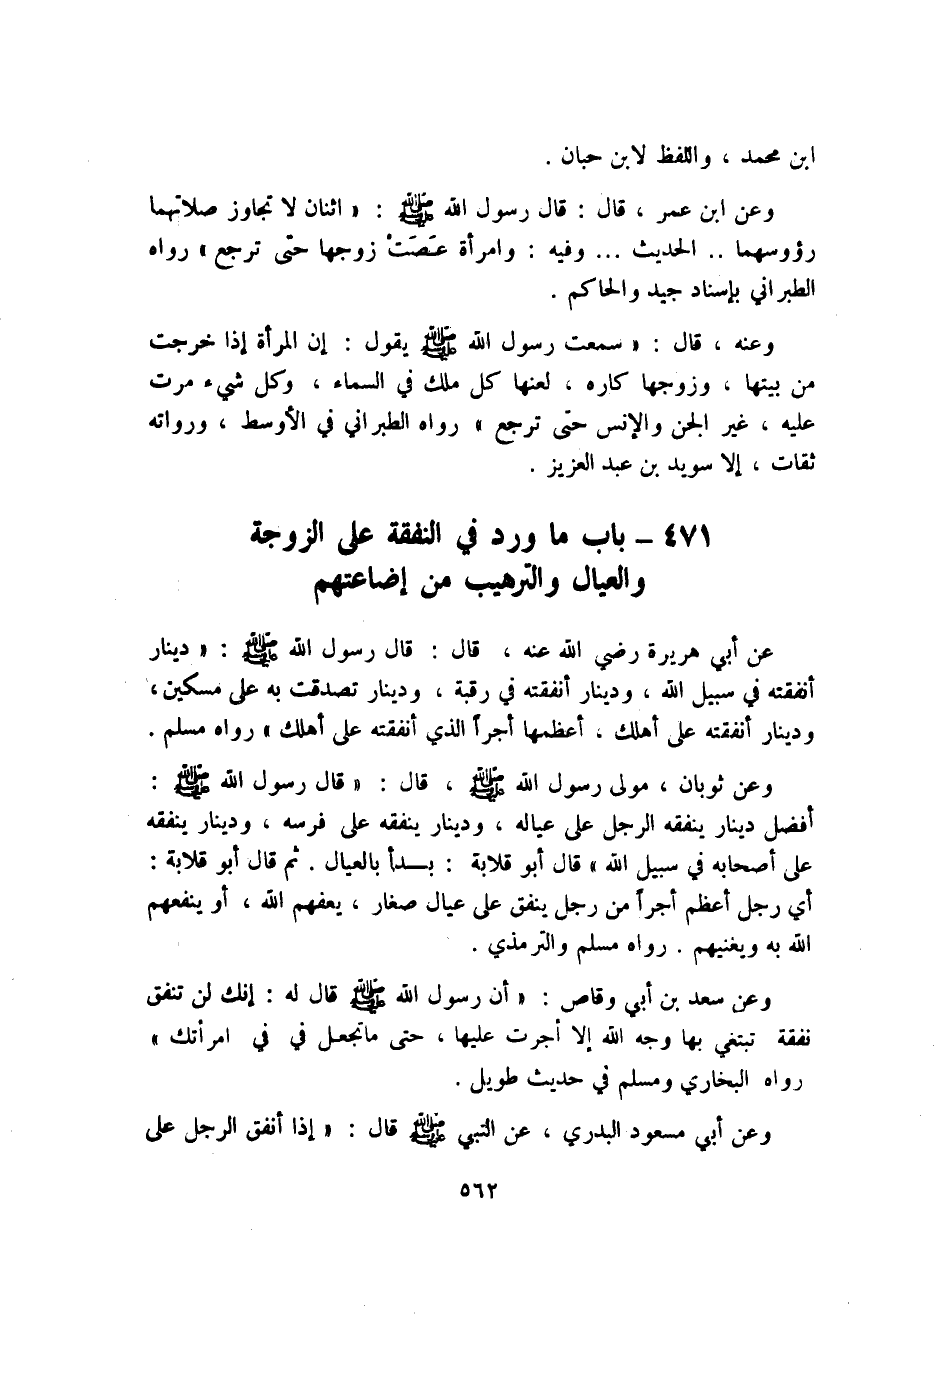 ابن محمد ، واللفظ لابن حبان .
وعن ابن عمر ، قال : قال رسول الله ﷺ : « اثنان لا تجاوز صلاتهما
رؤوسهما .. الحديث ... وفيه : وامرأة عَصَتْ زوجها حتّى ترجع » رواه
الطبراني بإسناد جيد والحاكم .
وعنه ، قال : « سمعت رسول الله ﷺ يقول : إن المرأة إذا خرجت
من بيتها ، وزوجها كاره ، لعنها كل ملك في السماء ، وكل شيء مرت
عليه ، غير الجن والإنس حتّى ترجع » رواه الطبراني في الأوسط ، ورواته
ثقات ، إلا سويد بن عبد العزيز .
٤٧١ – باب ما ورد في النفقة على الزوجة
والعيال والترهيب من إضاعتهم
عن أبي هريرة رضي الله عنه ، قال : قال رسول الله ﷺ : « دينار
أنفقته في سبيل الله ، ودينار أنفقته في رقبة ، ودينار تصدقت به على مسكين ،
ودينار أنفقته على أهلك ، أعظمها أجراً الذي أنفقته على أهلك » رواه مسلم .
وعن ثوبان ، مولى رسول الله ﷺ ، قال : « قال رسول الله ﷺ :
أفضل دينار ينفقه الرجل على عياله ، ودينار ينفقه على فرسه ، ودينار ينفقه
على أصحابه في سبيل الله » قال أبو قلابة : بـــدأ بالعيال . ثم قال أبو قلابة :
أي رجل أعظم أجراً من رجل ينفق على عيال صغار ، يعفهم الله ، أو ينفعهم
الله به ويغنيهم . رواه مسلم والترمذي .
وعن سعد بن أبي وقاص : « أن رسول الله ﷺ قال له : إنك لن تنفق
نفقة تبتغي بها وجه الله إلا أجرت عليها ، حتى ماتجعل في في امرأتك »
رواه البخاري ومسلم في حديث طويل .
وعن أبي مسعود البدري ، عن النبي ﷺ قال : « إذا أنفق الرجل على
٥٦٢